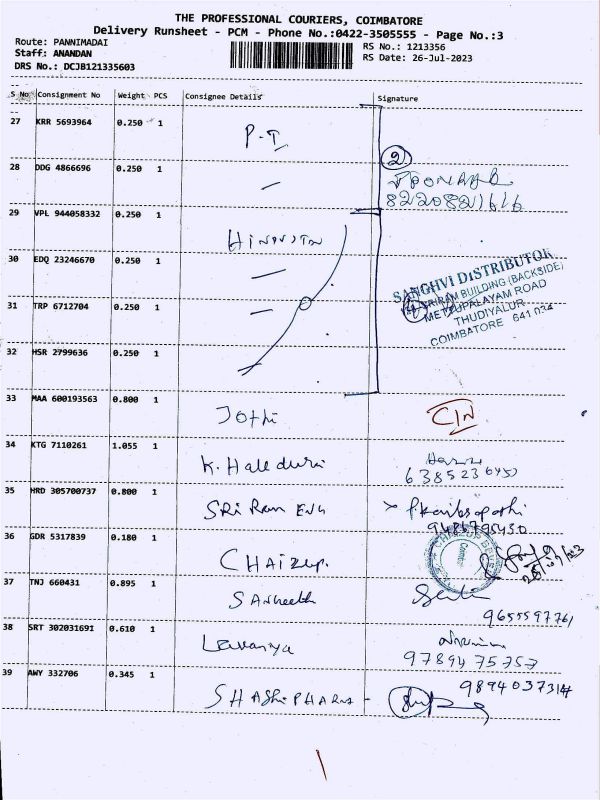 THE PROFESSIONAL COURIERS, COIMBATORE
Delivery Runsheet - PCM - Phone No.:0422-3505555 - Page No.:3
Route: PANNIMADAI
Staff: ANANDAN
DRS No.: DCJB121335603
RS No.: 1213356
RS Date: 26-Jul-2023
S No Consignment No Weight PCS Consignee Details Signature
27 KRR 5693964 0.250 1 P.T
28 DDG 4866696 0.250 1 — 2
8220821616
29 VPL 944058332 0.250 1
30 EDQ 23246670 0.250 1 —
SANGHVI DISTRIBUTOR
SRIRAM BUILDING (BACKSIDE)
METTUPALAYAM ROAD
THUDIYALUR
COIMBATORE 641 034
31 TRP 6712704 0.250 1 —
32 HSR 2799636 0.250 1
33 MAA 600193563 0.800 1 Jothi
34 KTG 7110261 1.055 1 K.
35 HRD 305700737 0.800 1 SRi Ram ENG
9486795430
36 GDR 5317839 0.180 1 CHAIZup.
37 TNJ 660431 0.895 1 Sangeeth
9655597761
38 SRT 302031691 0.610 1 Lavanya
9789475757
39 AWY 332706 0.345 1 SHASHi PHARMA -
9894037314